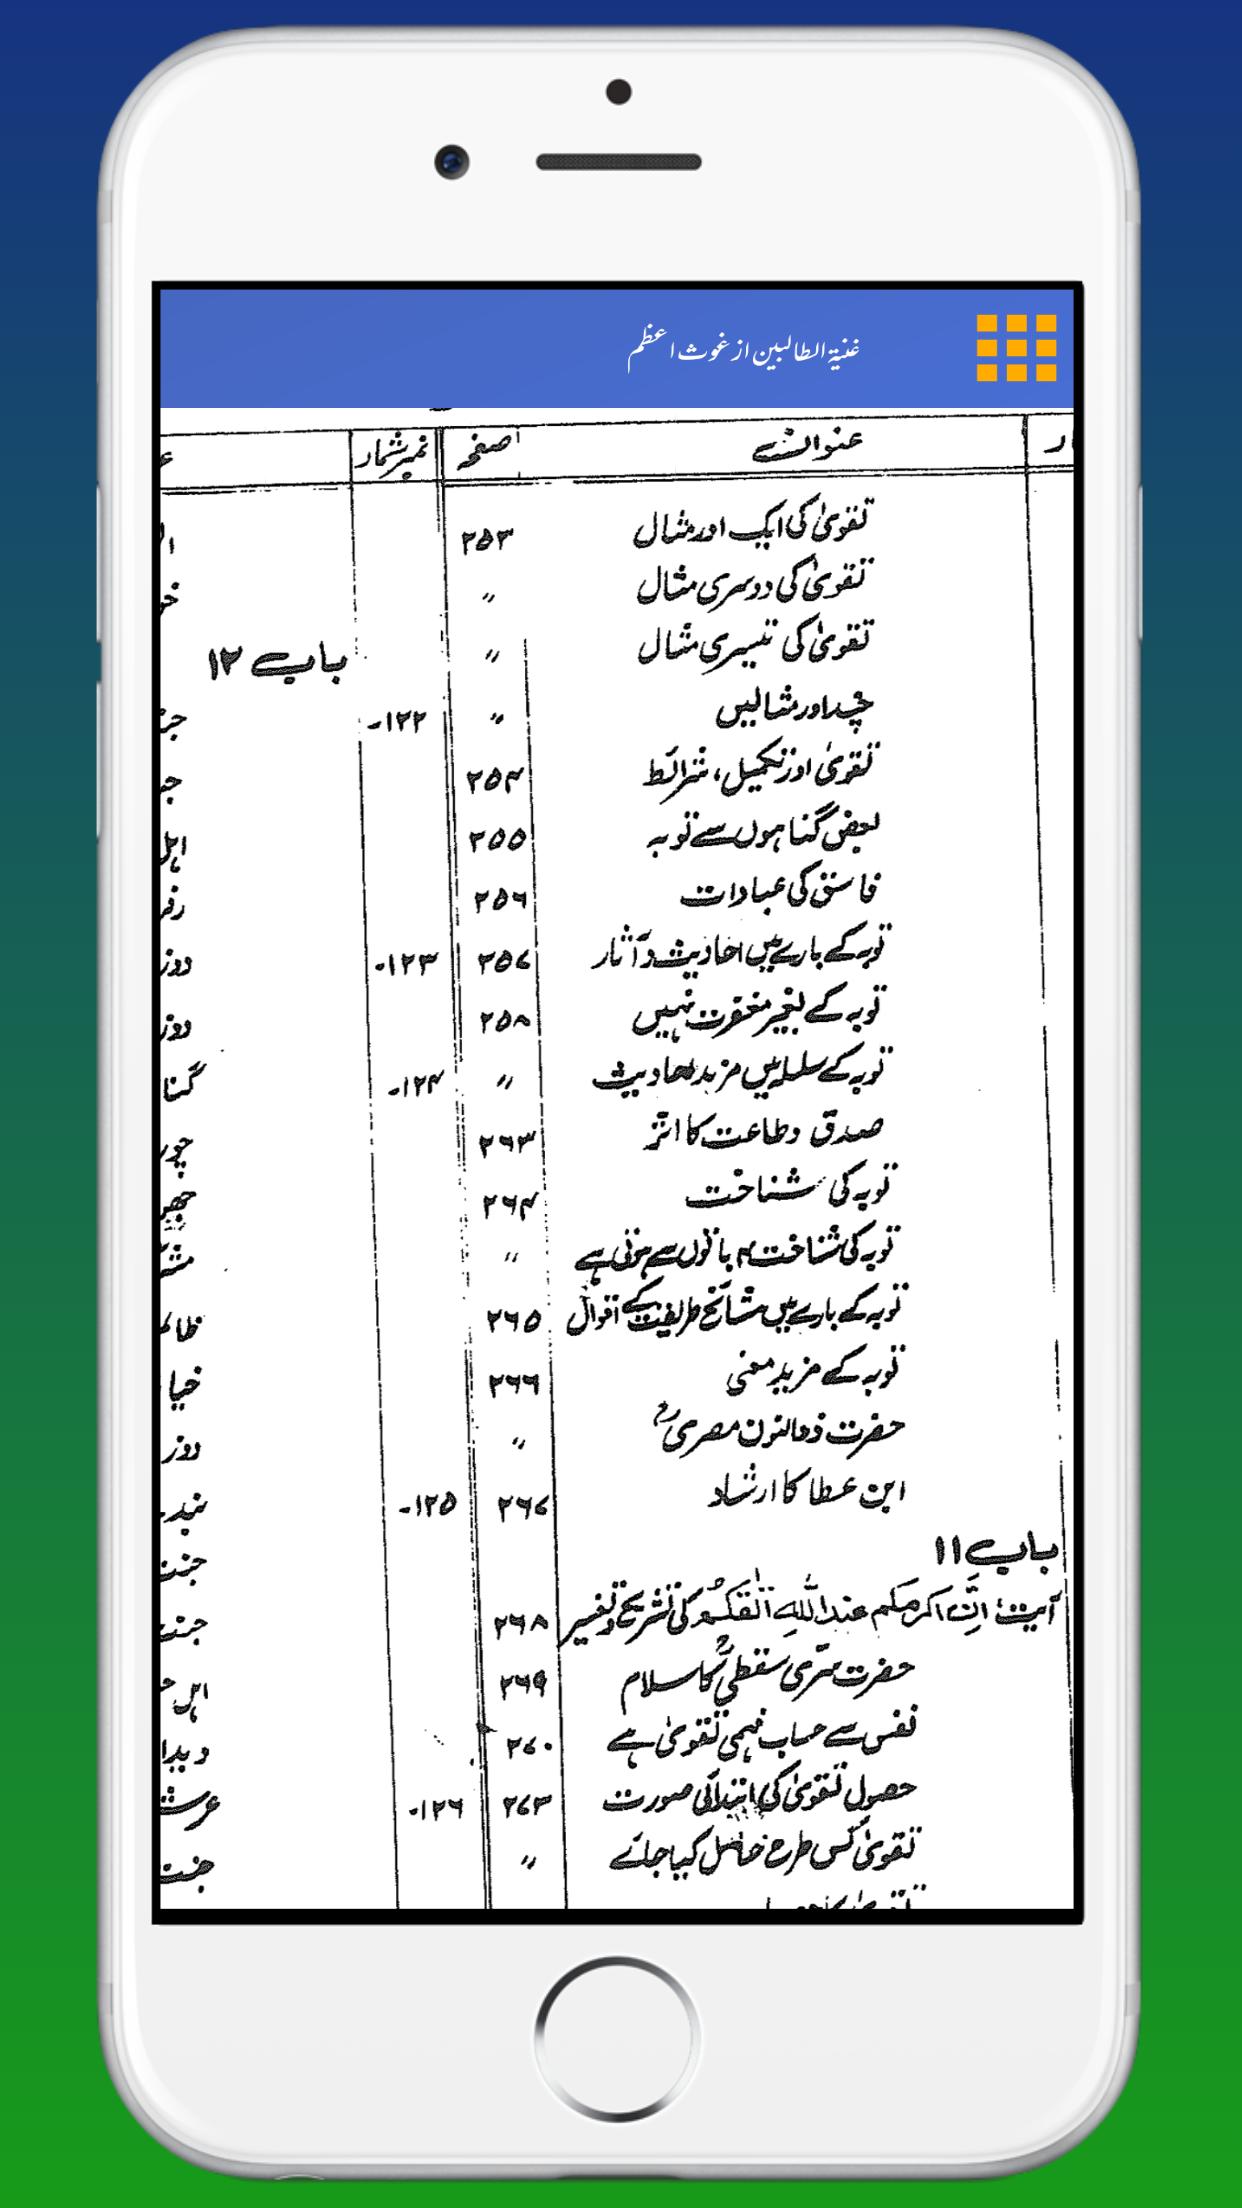 غنیۃ الطالبین از غوث اعظم
عنوان صفحہ نمبر شمار
تقویٰ کی ایک اور مثال ۲۵۳
تقویٰ کی دوسری مثال 〃
تقویٰ کی تیسری مثال 〃
باب ۱۲
چند اور مثالیں 〃 ۱۲۲-
تقویٰ اور تکمیل، شرائط ۲۵۴
بعض گناہوں سے توبہ ۲۵۵
فاسق کی عبادات ۲۵۶
توبہ کے بارے میں احادیث و آثار ۲۵۷ ۱۲۳-
توبہ کے بغیر مغفرت نہیں ۲۵۸
توبہ کے سلسلہ میں مزید احادیث 〃 ۱۲۴-
صدق و طاعت کا اثر ۲۶۳
توبہ کی شناخت ۲۶۴
توبہ کی شناخت ۴ باتوں سے ہوتی ہے 〃
توبہ کے بارے میں مشائخ طریقت کے اقوال ۲۶۵
توبہ کے مزید معنی ۲۶۶
حضرت ذوالنون مصریؒ 〃
ابن عطا کا ارشاد ۲۶۷ ۱۲۵-
باب ۱۱
آیت اِنَّ اکرمکم عنداللهِ اتقٰکُم کی تشریح و تفسیر ۲۶۸
حضرت سرّی سقطیؒ کا سلام ۲۶۹
نفس سے حساب فہمی تقویٰ ہے ۲۷۰
حصول تقویٰ کی ابتدائی صورت ۲۷۳ ۱۲۶-
تقویٰ کس طرح حاصل کیا جائے 〃